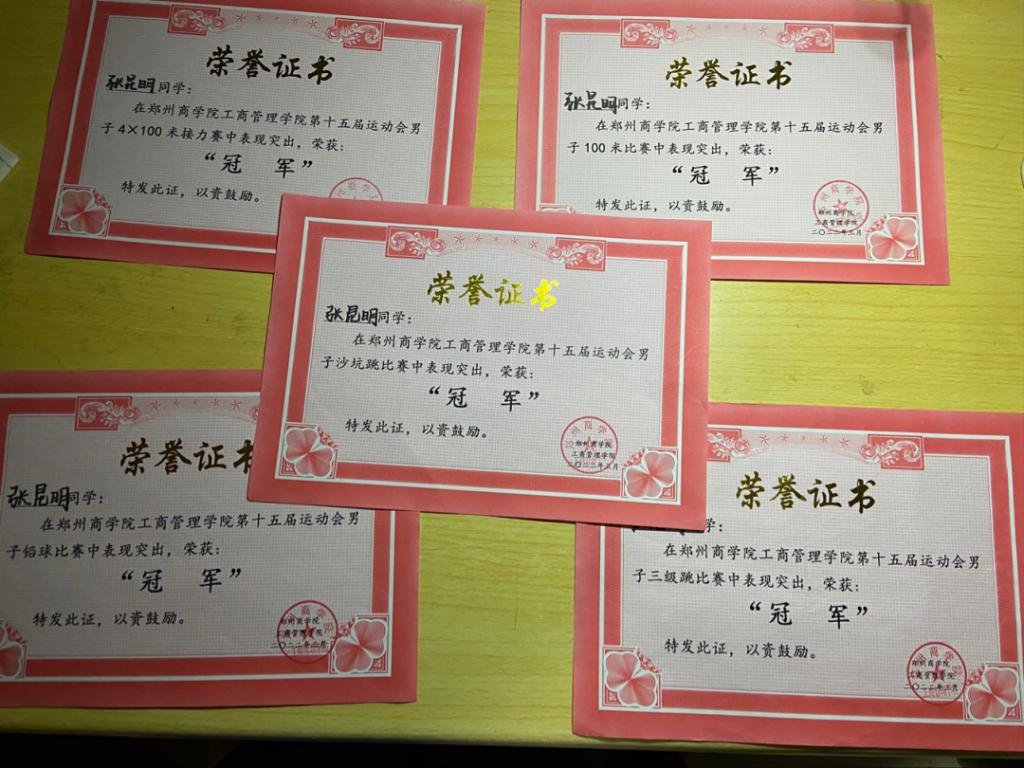 荣誉证书
张昆明同学：
在郑州商学院工商管理学院第十五届运动会男
子4×100米接力赛中表现突出，荣获：
“冠 军”
特发此证，以资鼓励。
荣誉证书
张昆明同学：
在郑州商学院工商管理学院第十五届运动会男
子100米比赛中表现突出，荣获：
“冠 军”
特发此证，以资鼓励。
郑州商学院
工商管理学院
二〇二二年三月
荣誉证书
张昆明同学：
在郑州商学院工商管理学院第十五届运动会男
子沙坑跳比赛中表现突出，荣获：
“冠 军”
特发此证，以资鼓励。
郑州商学院
工商管理学院
二〇二二年三月
荣誉证书
张昆明同学：
在郑州商学院工商管理学院第十五届运动会男
子铅球比赛中表现突出，荣获：
“冠 军”
特发此证，以资鼓励。
郑州商学院
工商管理学院
二〇二二年三月
荣誉证书
学：
在郑州商学院工商管理学院第十五届运动会男
子三级跳比赛中表现突出，荣获：
“冠 军”
特发此证，以资鼓励。
郑州商学院
工商管理学院
二〇二二年三月